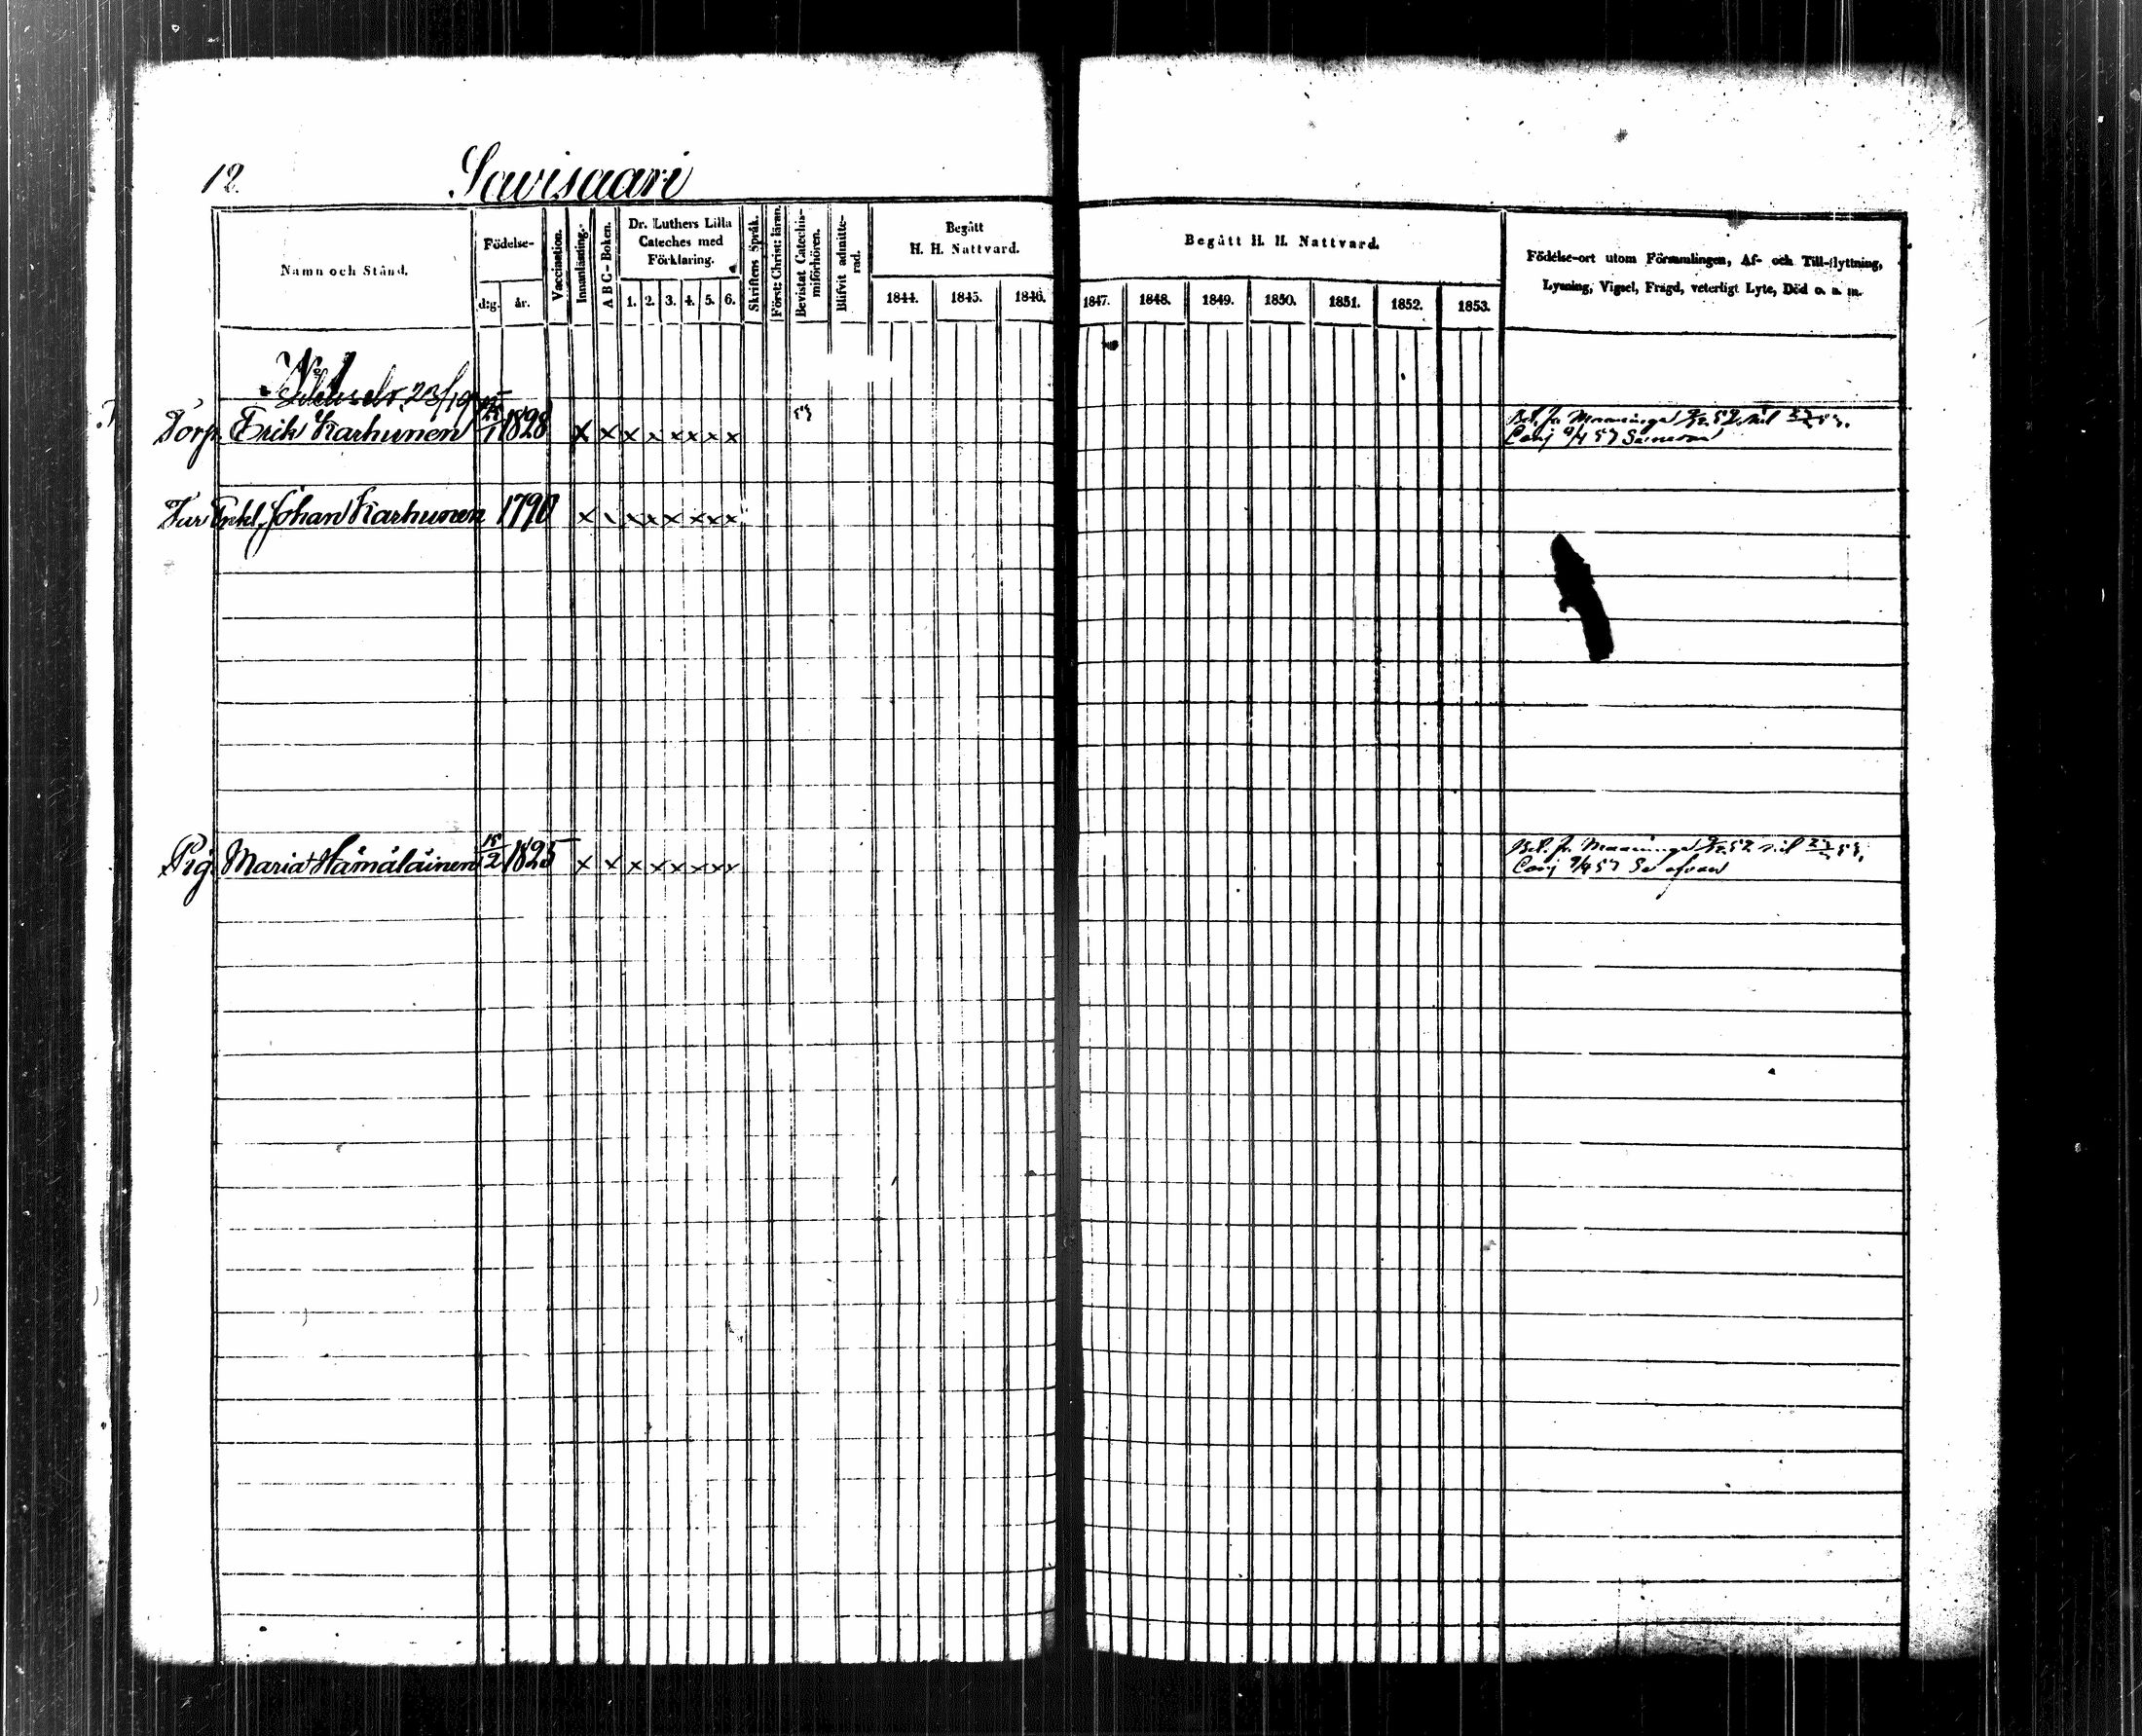 12
Savisaari
Namn och Stånd.
Födelse-
d:g.
år.
Vaccination.
Innanläsning.
A B C-Boken.
Dr. Luthers Lilla
Cateches med
Förklaring.
1. 2. 3. 4. 5. 6.
Skriftens Språk.
Först: Christ: läran.
Bevistat Catechis-
miförhören.
Blifvit admitte-
rad.
Begått
H. H. Nattvard.
1844. 1845. 1846.
Begått H. H. Nattvard.
1847. 1848. 1849. 1850. 1851. 1852. 1853.
Födelse-ort utom Församlingen, Af- och Till-flyttning,
Lysning, Vigsel, Frägd, veterligt Lyte, Död o. s. m.
23/10
Torp. Erik Karhunen 1828 x x x x x x x x
53
Maaninga
Enkl. Johan Karhunen 1790 x x x x x x x x
Pig. Maria Hämäläinen 15/12 1825 x x x x x x x x
Maaninga